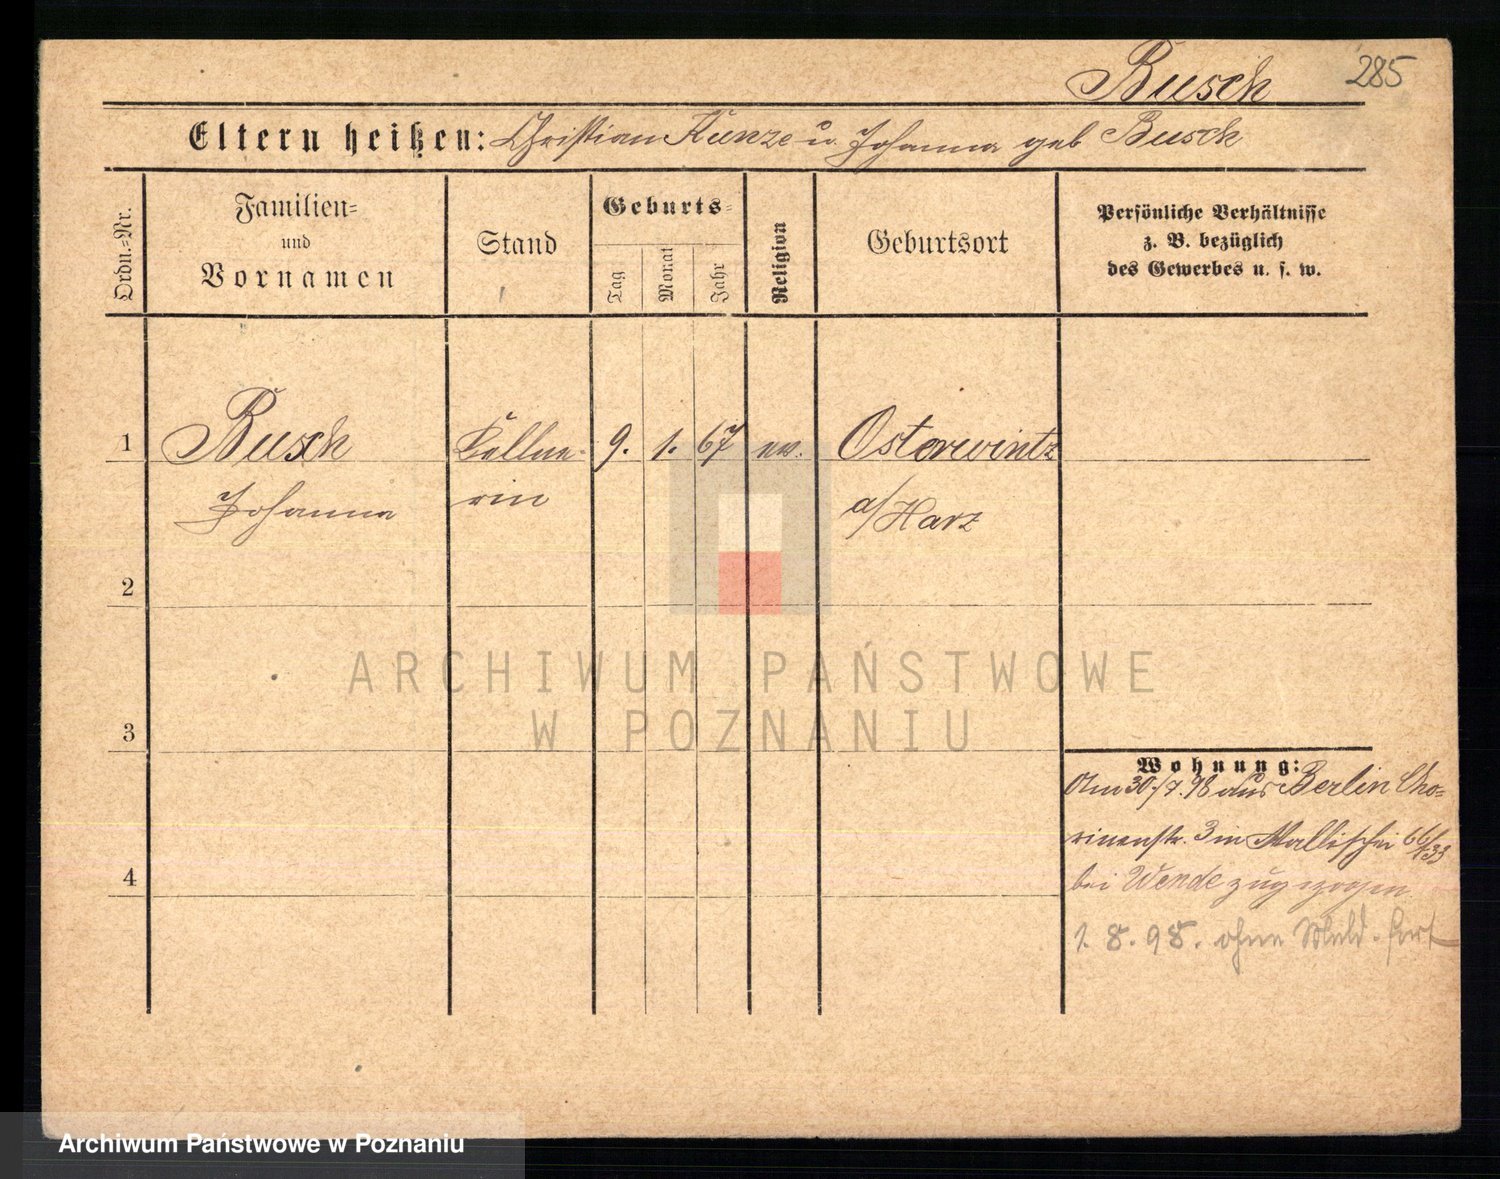 Busch 285
Eltern heißen: Christian Kunze u Johanna geb Busch
Ordn.=Nr. Familien= und Vornamen Stand Geburts= Tag Monat Jahr Religion Geburtsort Persönliche Verhältnisse z. B. bezüglich des Gewerbes u. s. w.
1 Busch Kellne- 9. 1. 67 ev. Osterwintz
Johanna rin a/Harz
2
ARCHIWUM PAŃSTWOWE
W POZNANIU
3
Wohnung:
Am 30./7. 98 aus Berlin Cho=
rinerstr. 3 in Wallischei 66/133
4 bei Wende zugezogen
1. 8. 98. ohne Meld. fort
Archiwum Państwowe w Poznaniu